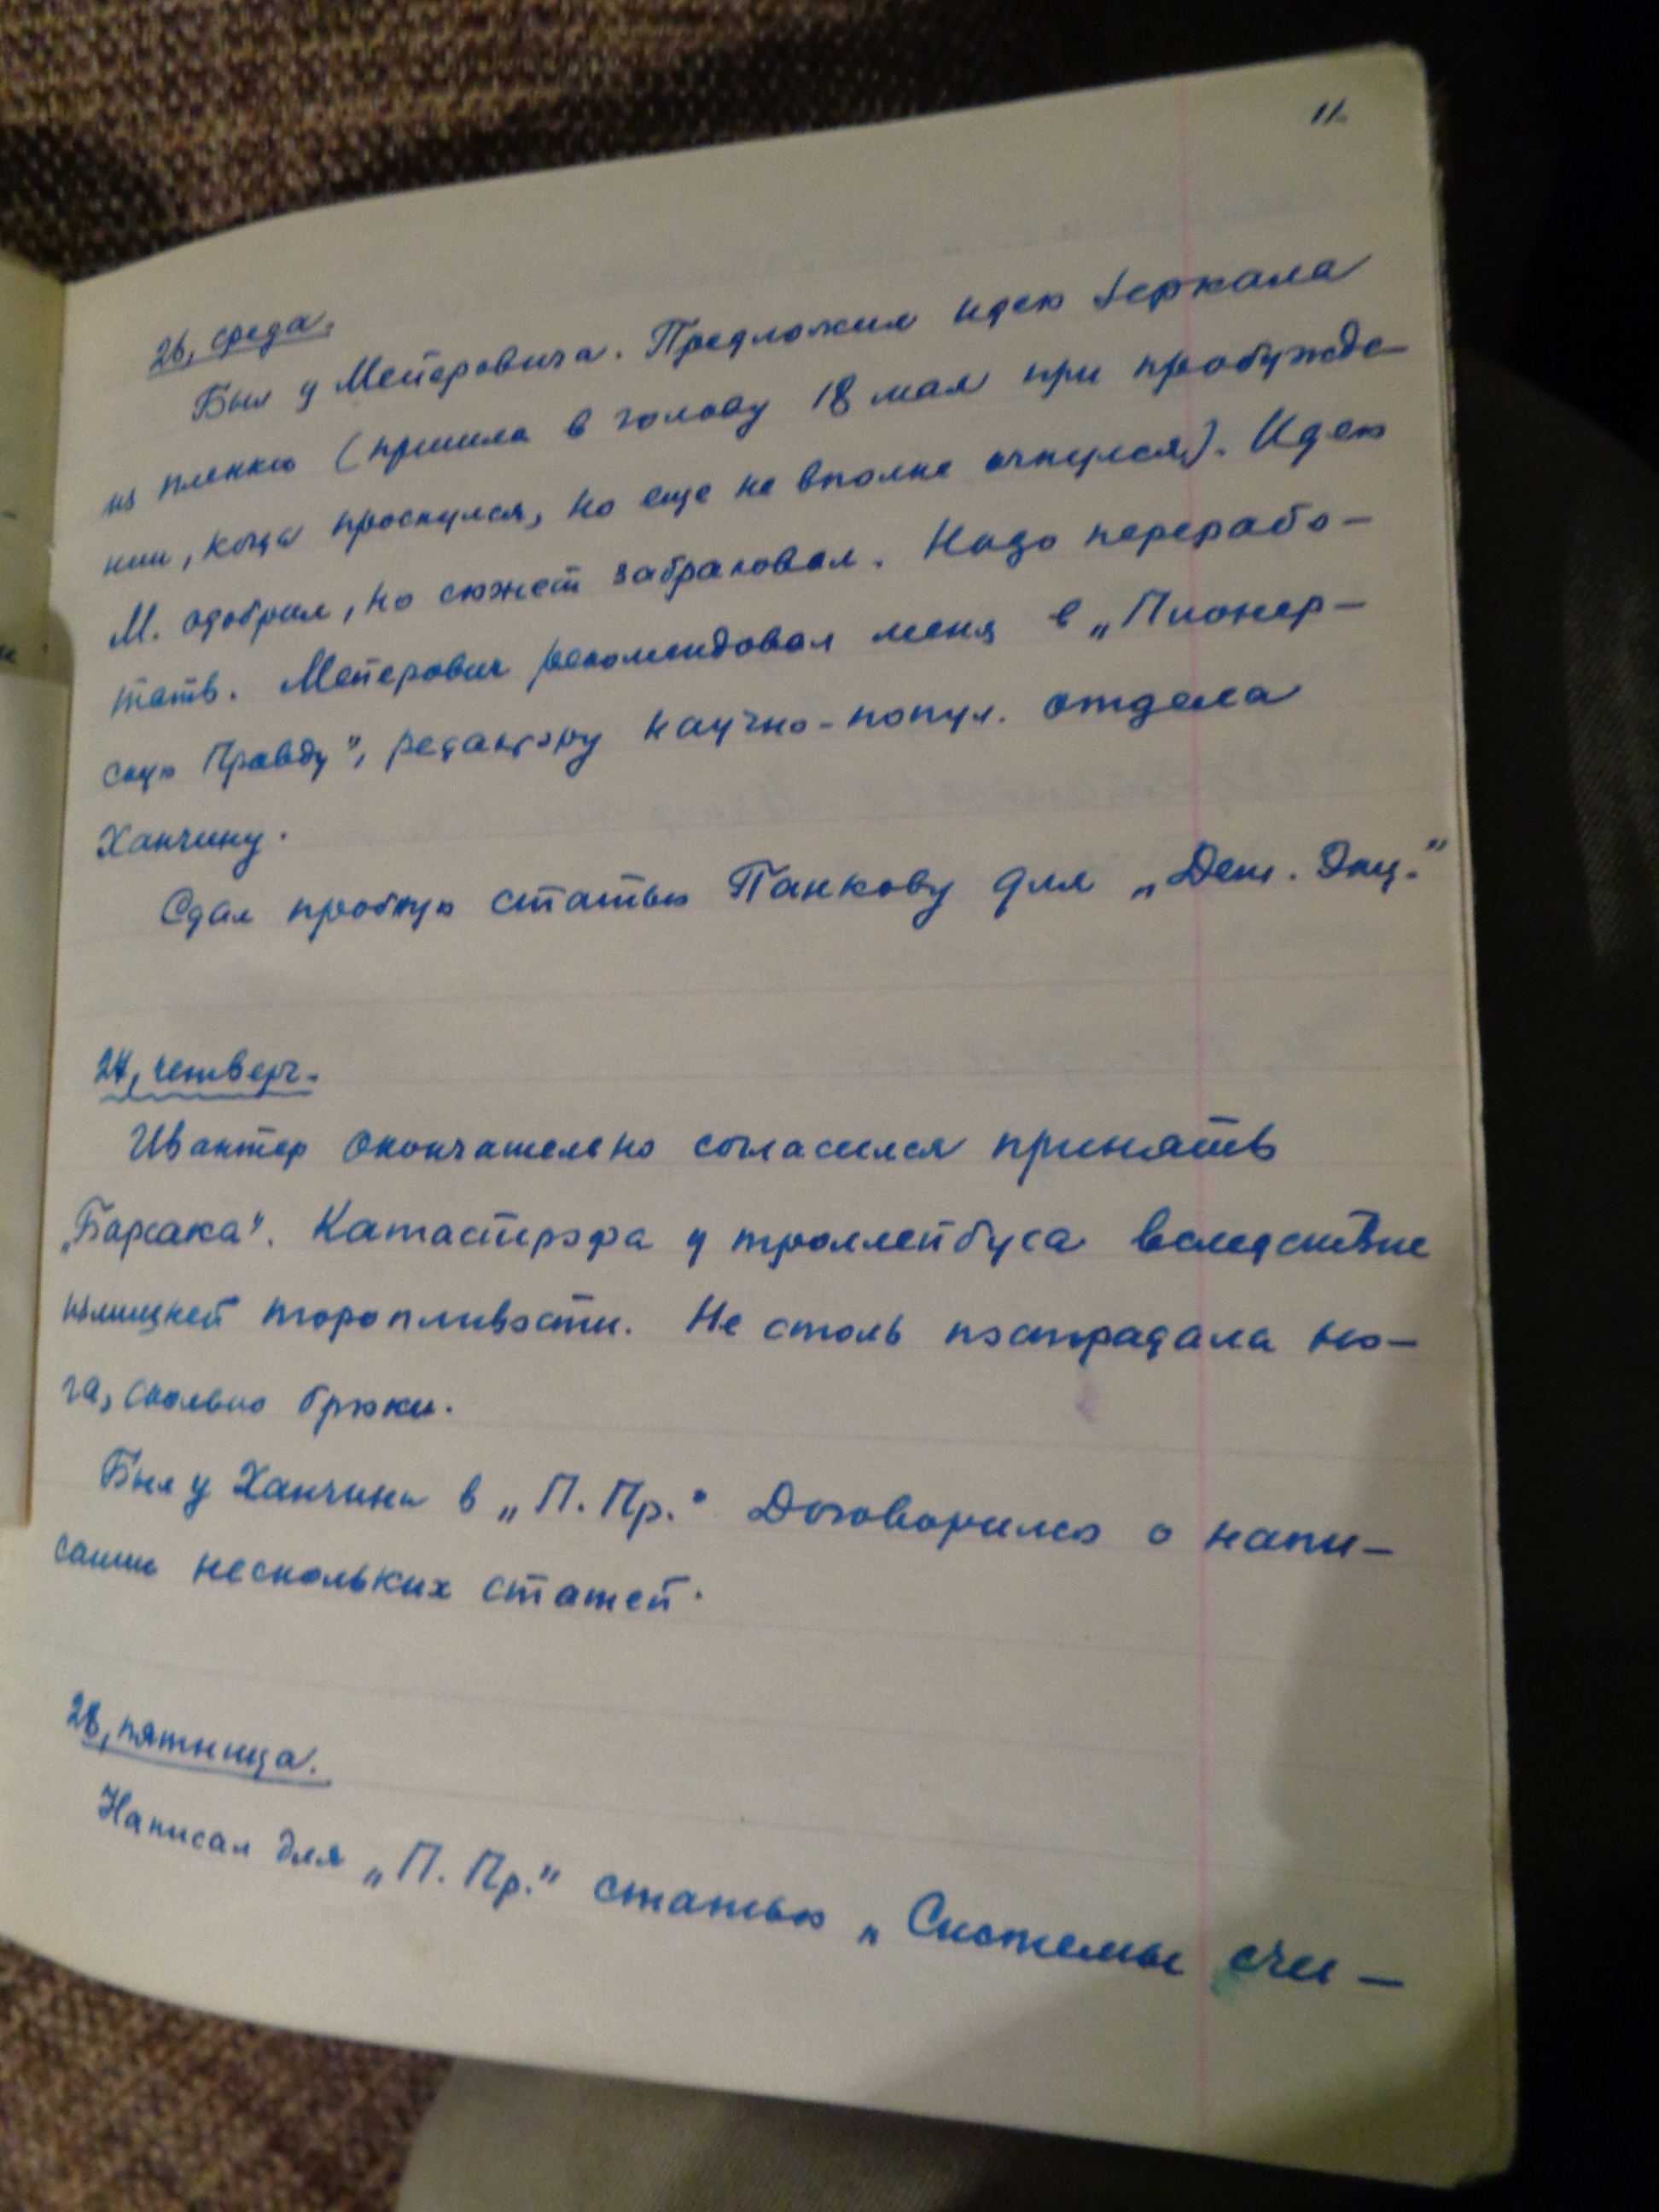 11.
26, среда.
Был у Мейеровича. Предложил идею зеркала
из пленки (пришла в голову 18 мая при пробужде-
нии, когда проснулся, но еще не вполне очнулся). Идею
М. одобрил, но сюжет забраковал. Надо перерабо-
тать. Мейерович рекомендовал меня в „Пионер-
скую Правду", редактору научно-попул. отдела
Ханчину.
Сдал пробную статью Панкову для „Дет. Энц."
27, четверг.
Ивантер окончательно согласился принять
„Барсака". Катастрофа у троллейбуса вследствие
излишней торопливости. Не столь пострадала но-
га, сколько брюки.
Был у Ханчина в „П. Пр." Договорился о напи-
сании нескольких статей.
28, пятница.
Написал для „П. Пр." статью „Системы счи-